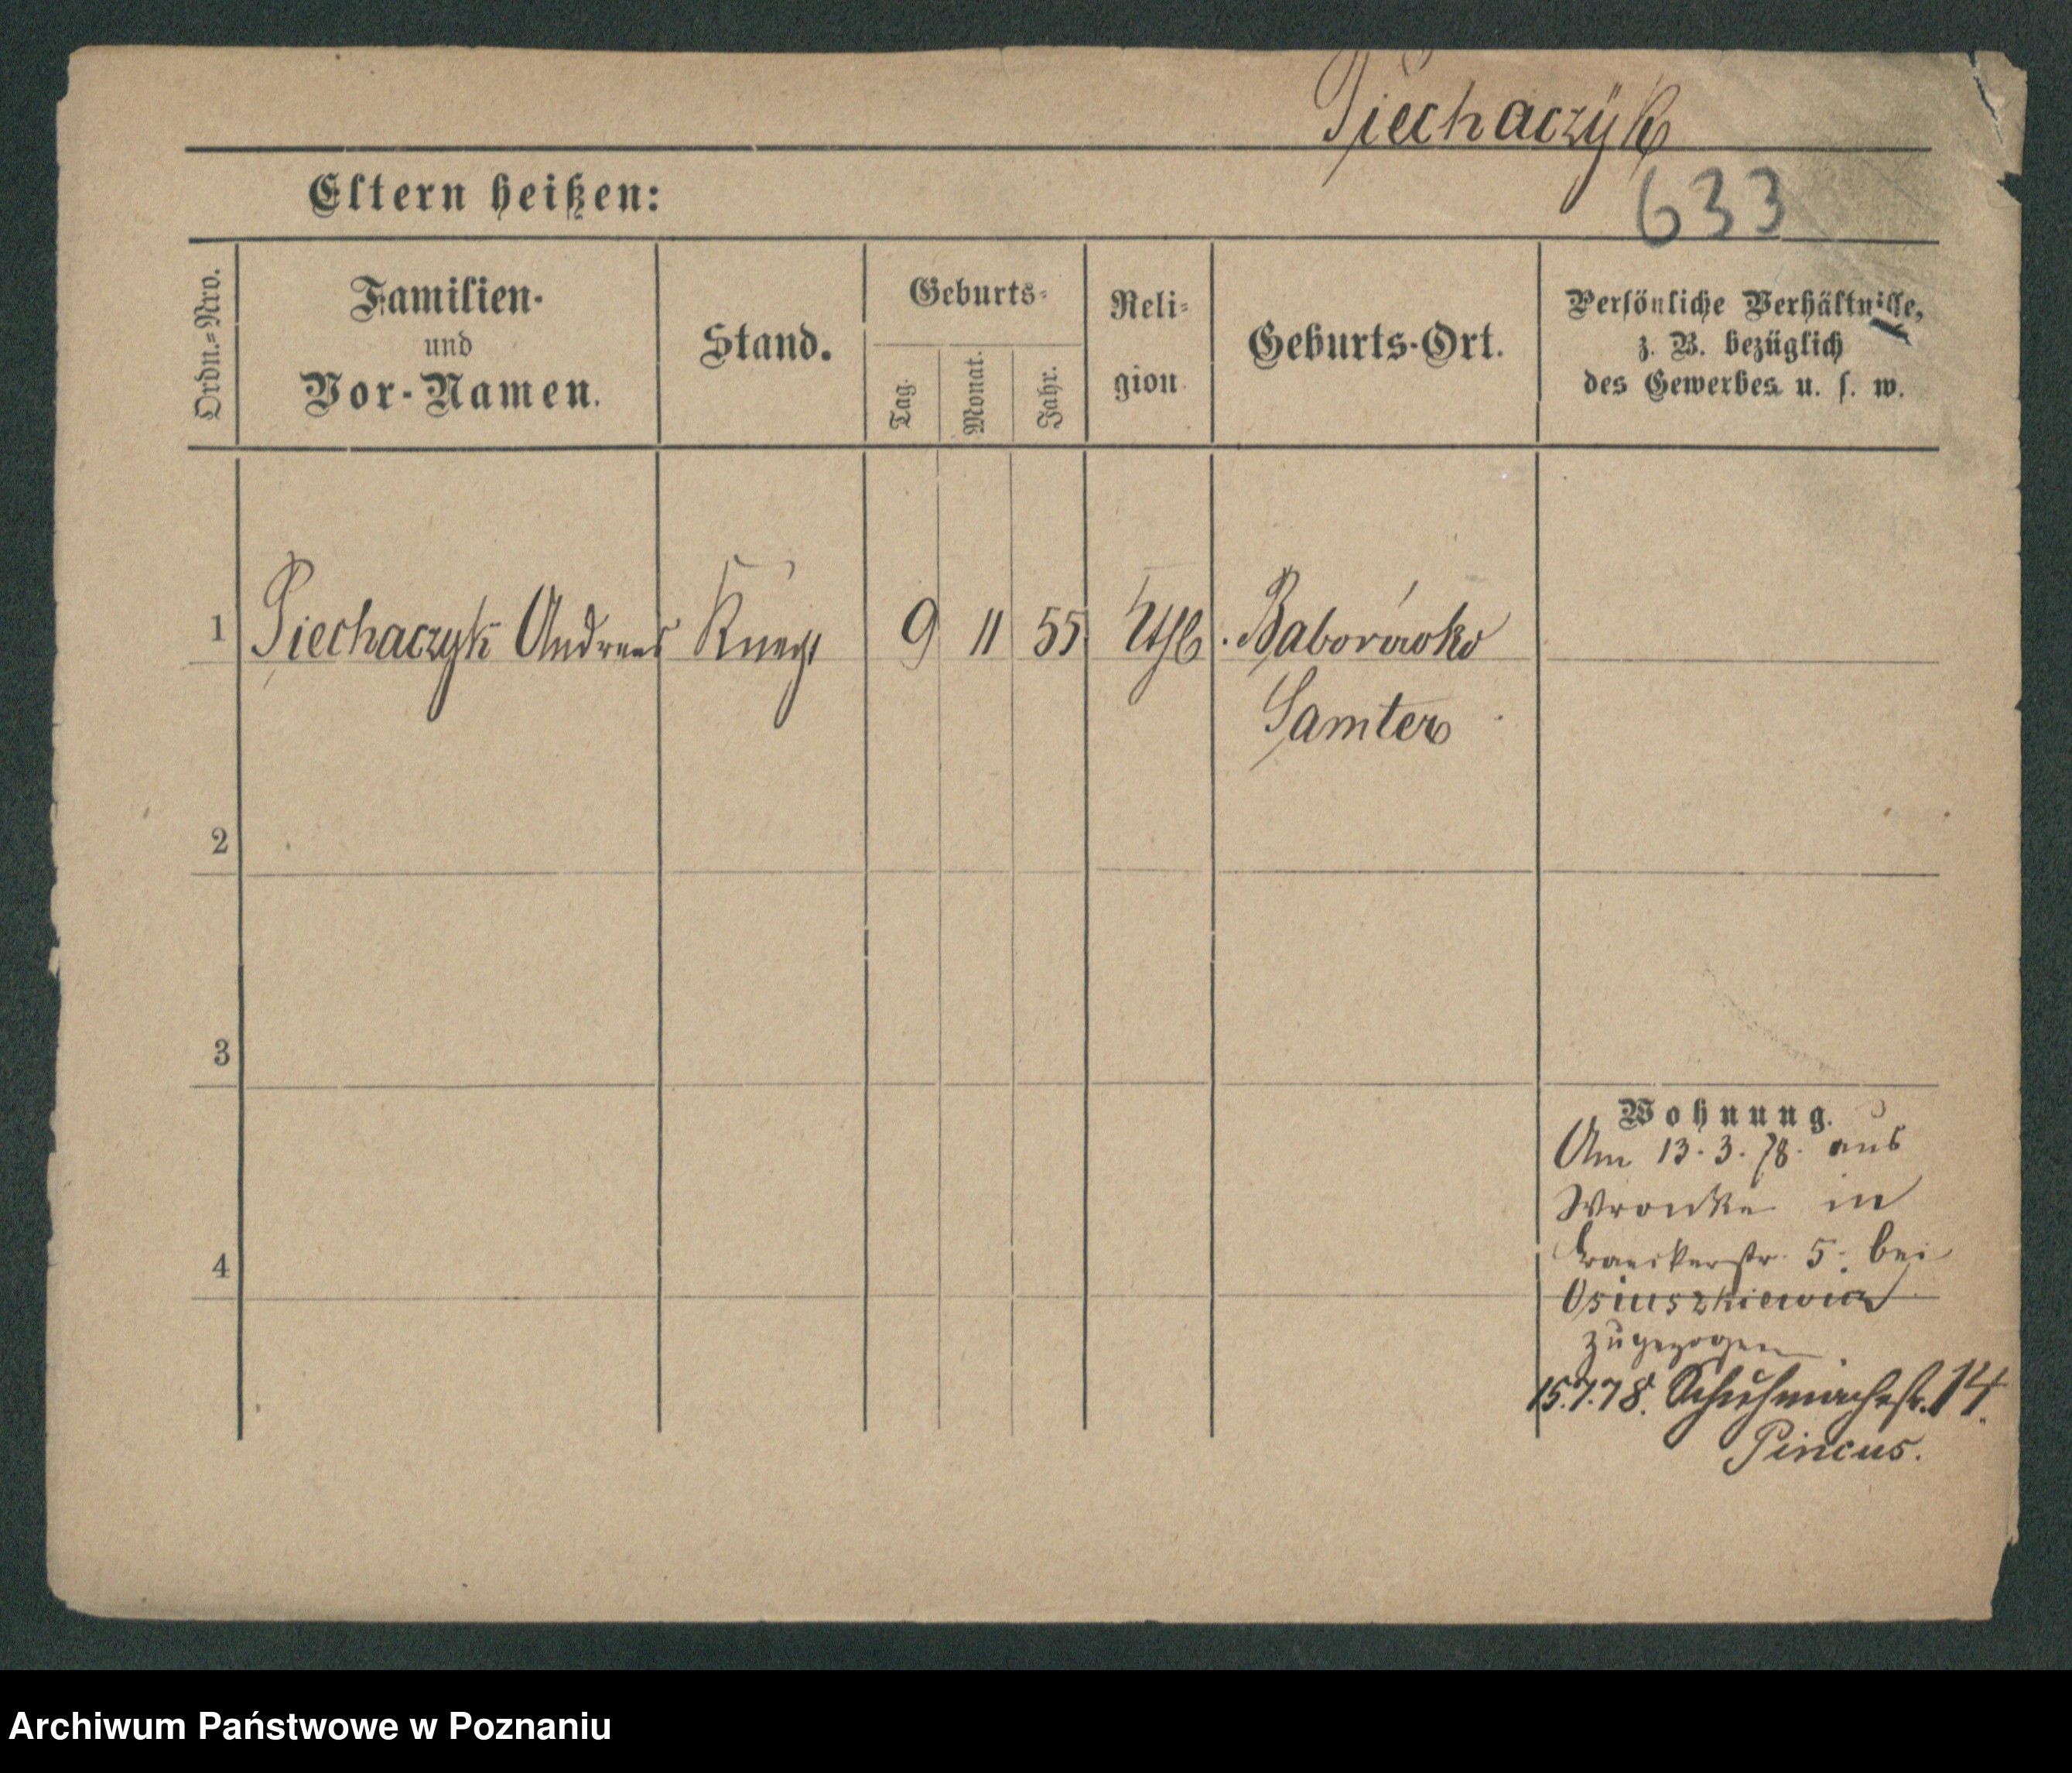 Piechaczÿk
633
Eltern heißen:
Ordn.=Nro.
Familien-
und
Vor-Namen.
Stand.
Geburts-
Tag.
Monat.
Jahr.
Reli-
gion.
Geburts-Ort.
Persönliche Verhältnisse,
z. B. bezüglich
des Gewerbes u. s. w.
1 Piechaczyk Andreas Knecht 9 11 55 kthl. Baborówko
Samter
2
3
4
Wohnung.
Am 13.3.78. aus
Wronke in
5. bei
zugezogen
15.7.78. Schuhmacherstr. 14.
Pincus.
Archiwum Państwowe w Poznaniu